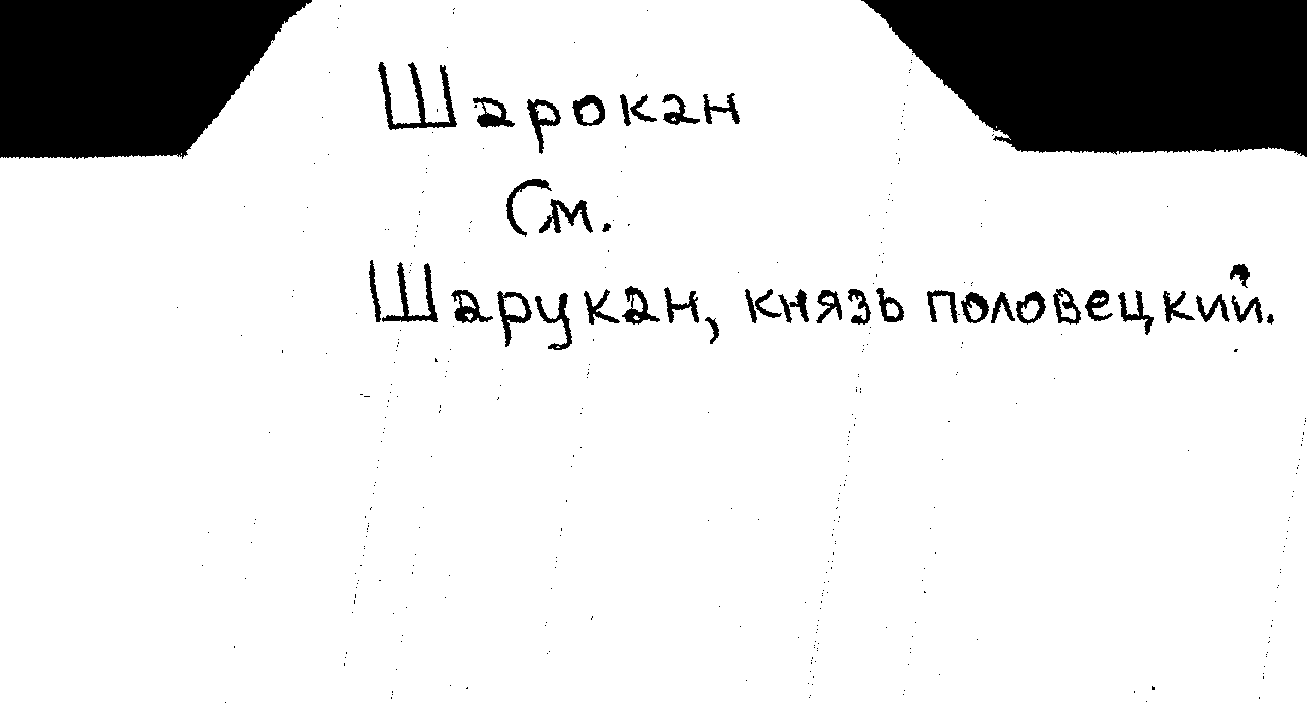 Шарокан
См.
Шарукан, князь половецкий.